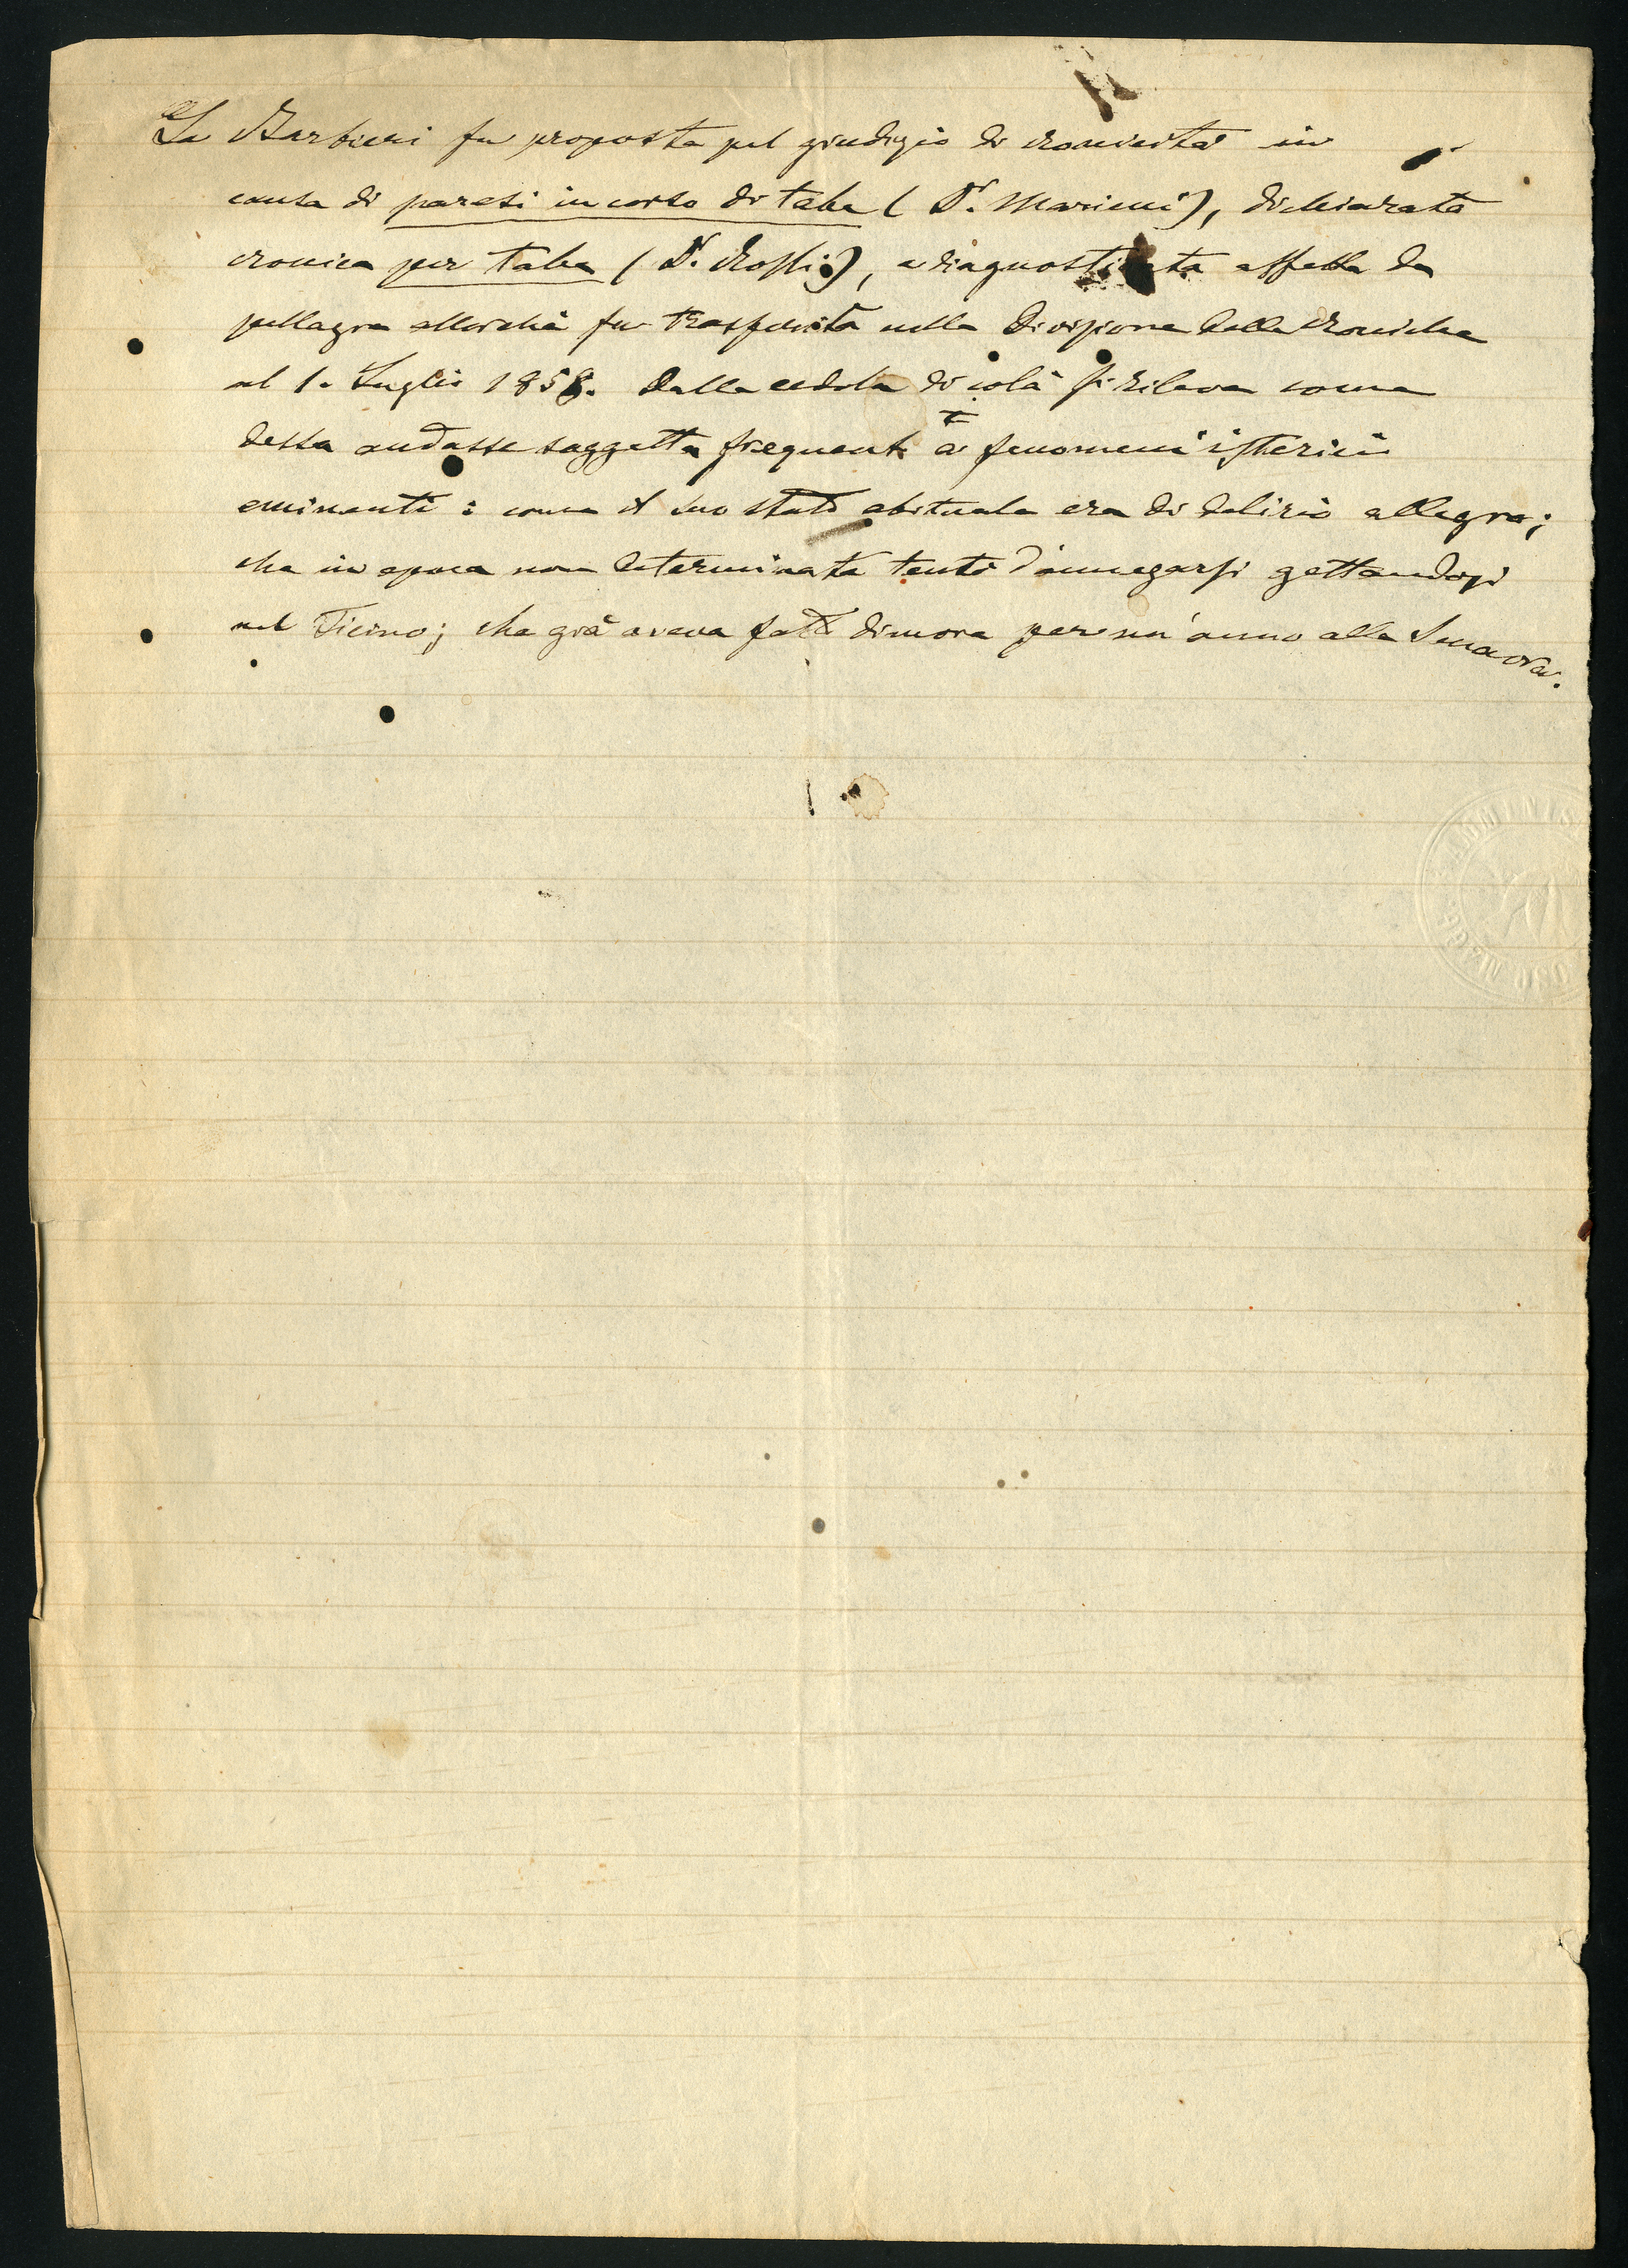 La Barbieri fu proposta pel giudizio di cronicità in
causa di paresi in corso di tabe (Dr. Mariani), dichiarata
cronica per tabe (Dr. Rossi), e diagnosticata affetta da
pellagra allorchè fu trasferita nella Divisione delle croniche
nel 1. Luglio 1858. Dalla cedola di colà si rileva come
dessa andasse soggetta frequentte a fenomeni isterici
eminenti: come il suo stato abituale era di delirio allegro;
che in epoca non determinata tentò d'annegarsi gettandosi
nel Ticino; che già aveva fatto dimora per un'anno alla Senavra.
AMMINIS